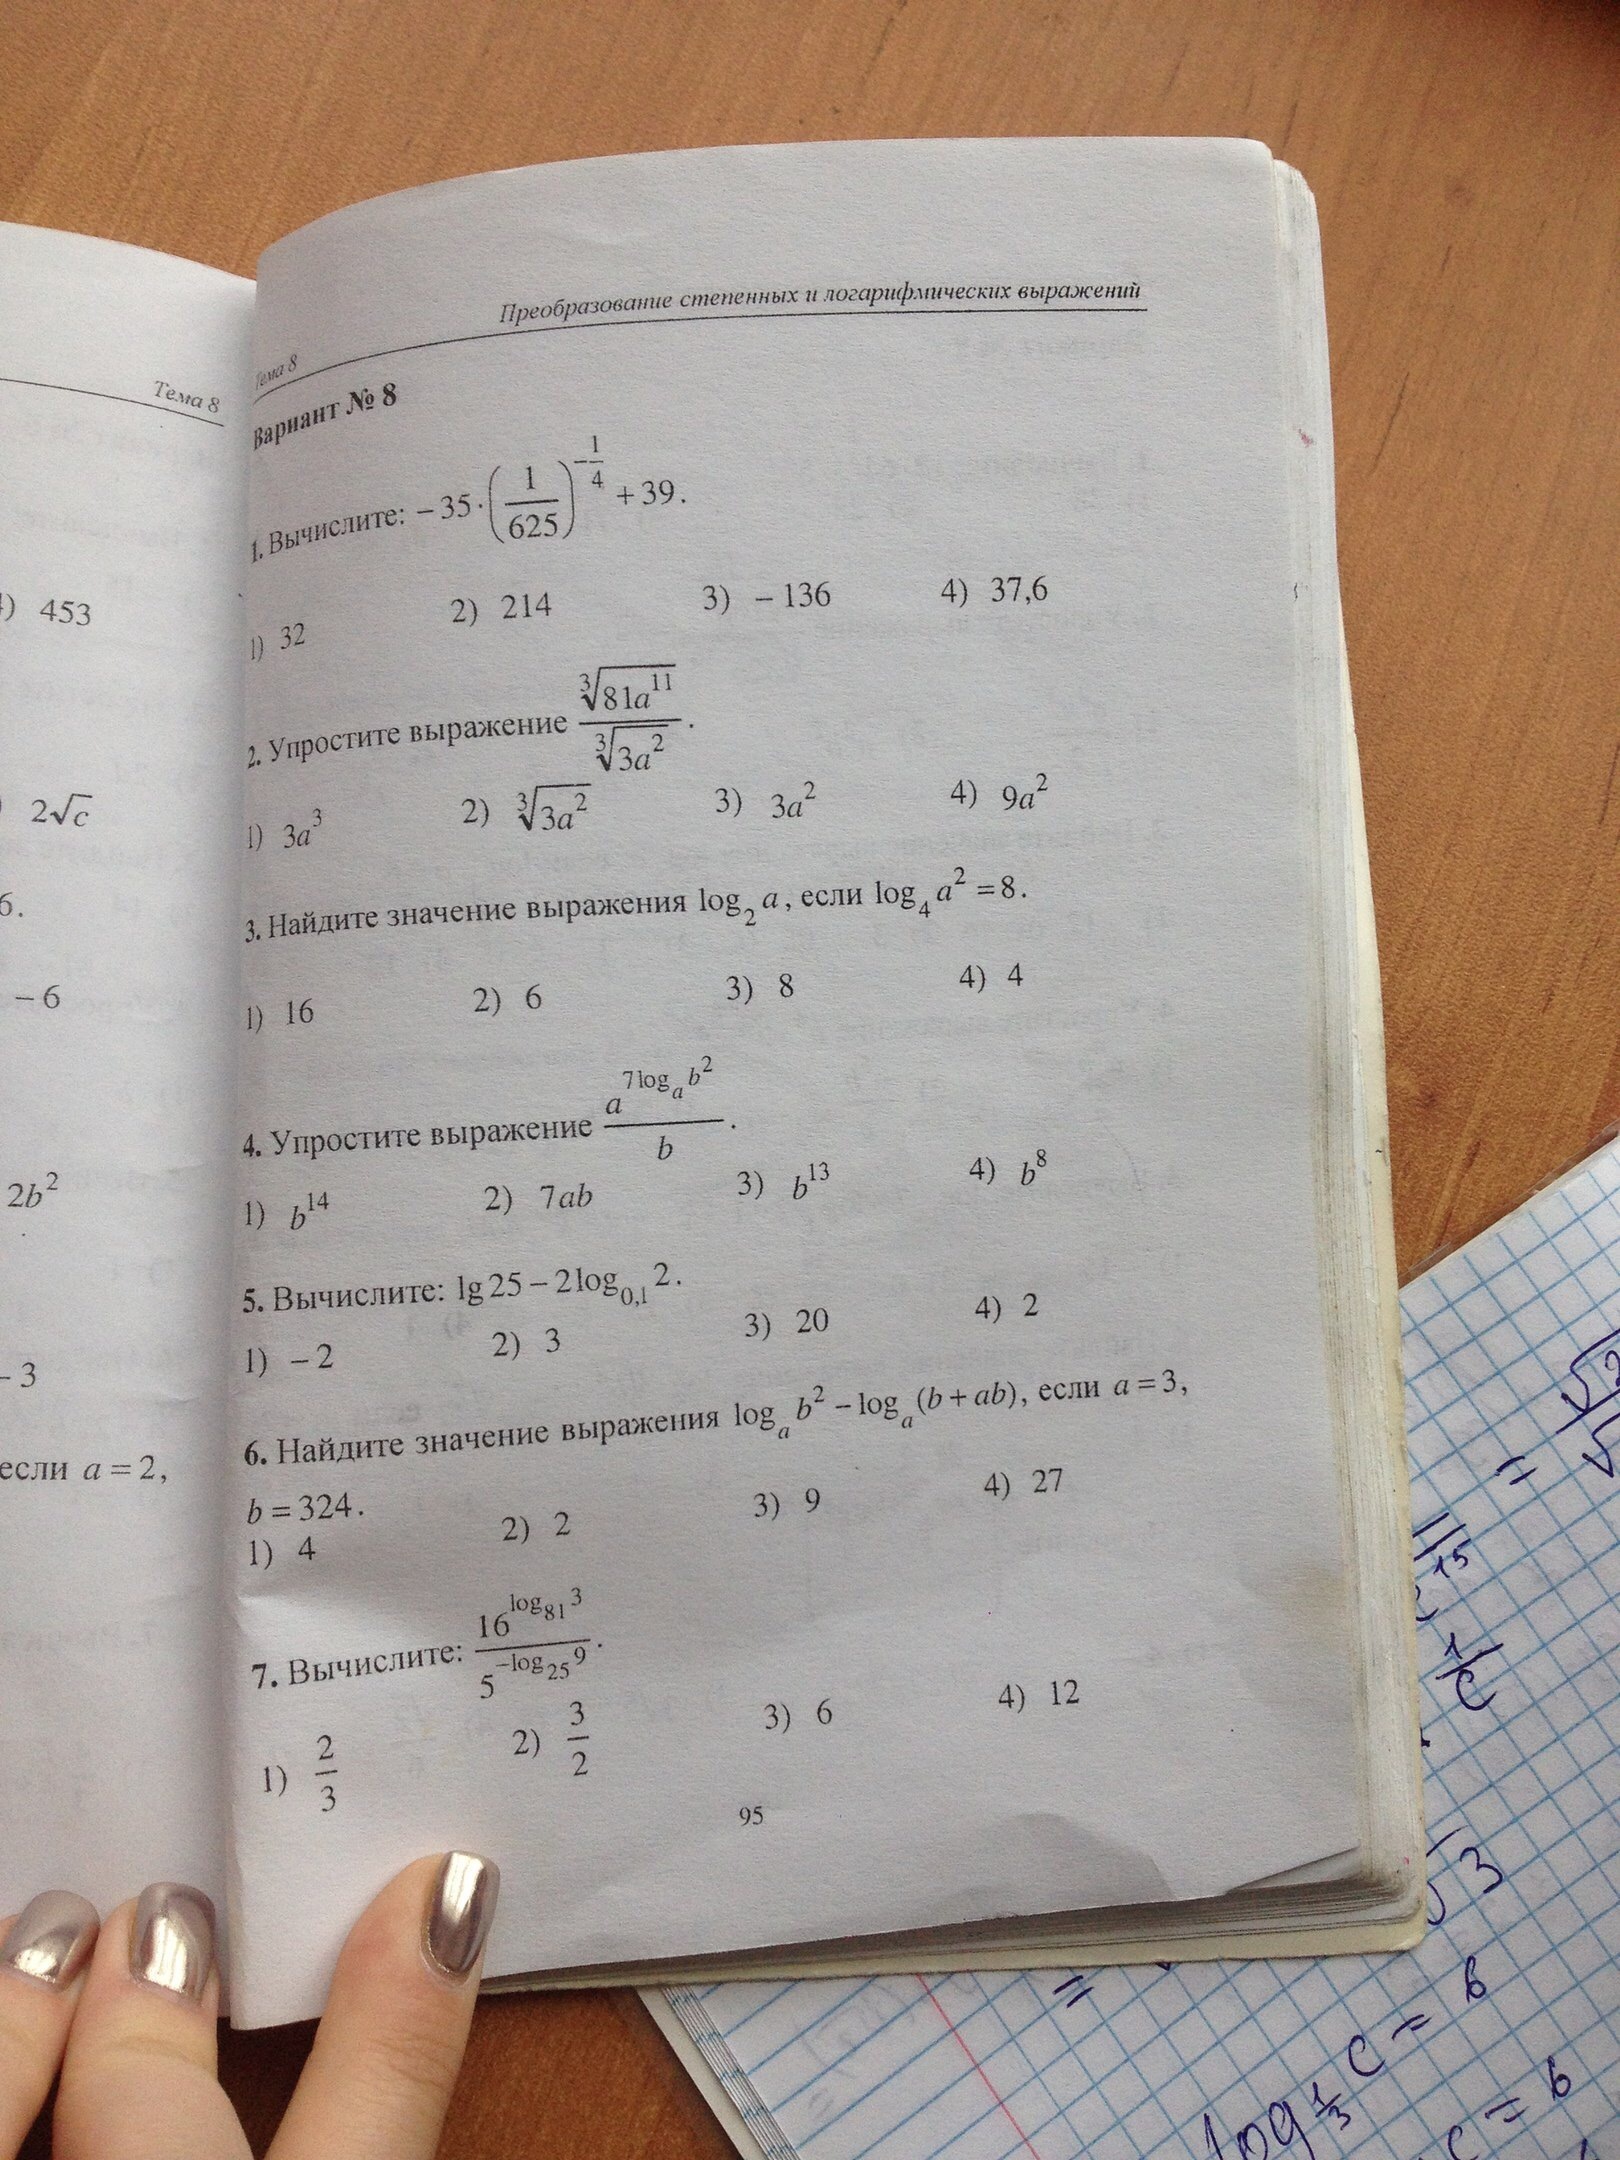 Тема 8
4) 453
2√c
6.
– 6
2b²
– 3
если a = 2,
Преобразование степенных и логарифмических выражений
Тема 8
Вариант № 8
1. Вычислите: – 35 · (1/625)^(–1/4) + 39.
1) 32 2) 214 3) – 136 4) 37,6
2. Упростите выражение ∛(81a¹¹) / ∛(3a²).
1) 3a³ 2) ∛(3a²) 3) 3a² 4) 9a²
3. Найдите значение выражения log₂ a, если log₄ a² = 8.
1) 16 2) 6 3) 8 4) 4
4. Упростите выражение a^(7log_a b²) / b.
1) b¹⁴ 2) 7ab 3) b¹³ 4) b⁸
5. Вычислите: lg 25 – 2log₀,₁ 2.
1) – 2 2) 3 3) 20 4) 2
6. Найдите значение выражения log_a b² – log_a (b + ab), если a = 3,
b = 324.
1) 4 2) 2 3) 9 4) 27
7. Вычислите: 16^(log₈₁ 3) / 5^(–log₂₅ 9).
1) 2/3 2) 3/2 3) 6 4) 12
95
√3
log 1/3 c = b
c = b